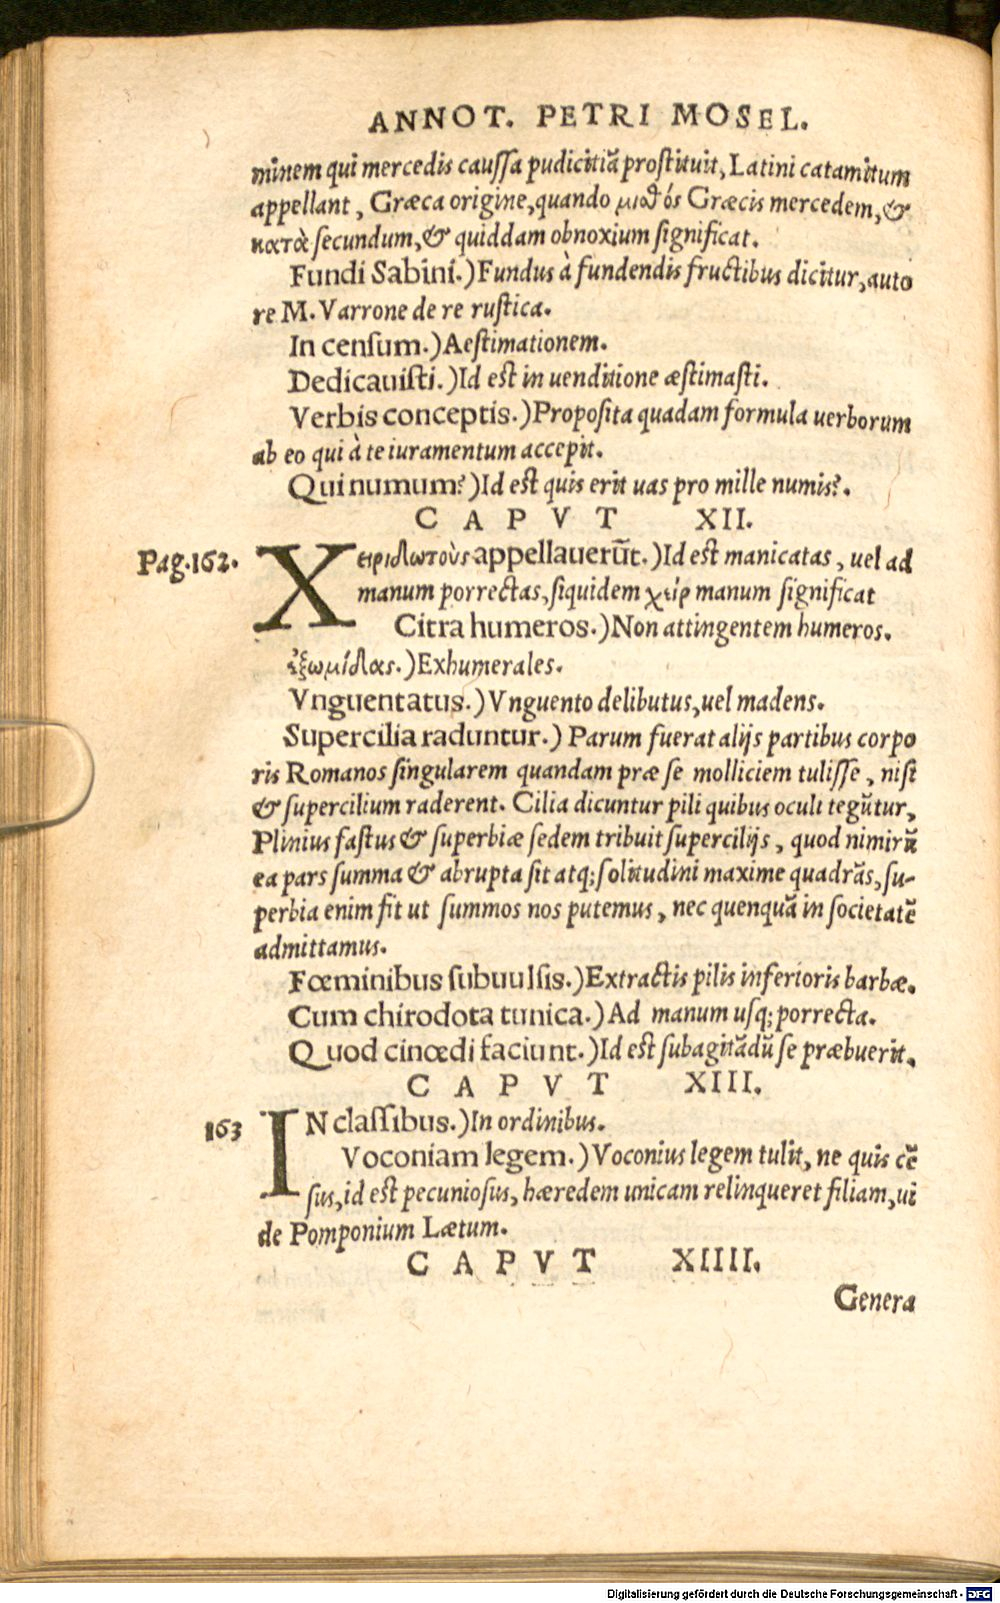 ANNOT. PETRI MOSEL.
minem qui mercedis caussa pudicitiã prostituit, Latini catamitum
appellant, Græca origine, quando μισθός Græcis mercedem, &
κατὰ secundum, & quiddam obnoxium significat.
Fundi Sabini.) Fundus à fundendis fructibus dicitur, auto
re M. Varrone de re rustica.
In censum.) Aestimationem.
Dedicauisti.) Id est in uenditione æstimasti.
Verbis conceptis.) Proposita quadam formula uerborum
ab eo qui à te iuramentum accepit.
Qui numum?) Id est quis erit uas pro mille numis?.
CAPVT XII.
Pag. 162.
Χειριδωτοὺς appellauerũt.) Id est manicatas, uel ad
manum porrectas, siquidem χεὶρ manum significat
Citra humeros.) Non attingentem humeros.
ἐξωμίδας.) Exhumerales.
Vnguentatus.) Vnguento delibutus, uel madens.
Supercilia raduntur.) Parum fuerat alijs partibus corpo
ris Romanos singularem quandam præ se molliciem tulisse, nisi
& supercilium raderent. Cilia dicuntur pili quibus oculi tegũtur,
Plinius fastus & superbiæ sedem tribuit supercilijs, quod nimirũ
ea pars summa & abrupta sit atq; solitudini maxime quadrãs, su-
perbia enim fit ut summos nos putemus, nec quenquã in societatẽ
admittamus.
Fœminibus subuulsis.) Extractis pilis inferioris barbæ.
Cum chirodota tunica.) Ad manum usq; porrecta.
Quod cinœdi faciunt.) Id est subagitãdũ se præbuerit.
CAPVT XIII.
163
IN classibus.) In ordinibus.
Voconiam legem.) Voconius legem tulit, ne quis cẽ
sus, id est pecuniosus, hæredem unicam relinqueret filiam, ui
de Pomponium Lætum.
CAPVT XIIII.
Genera
Digitalisierung gefördert durch die Deutsche Forschungsgemeinschaft - DFG